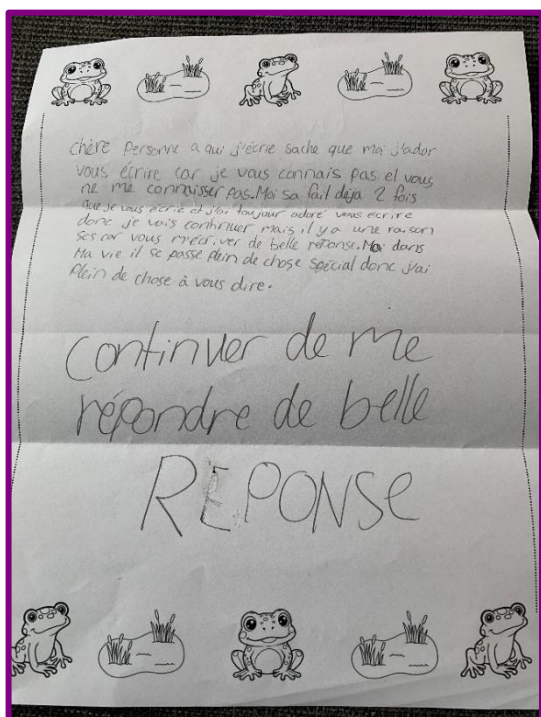 chère Personne a qui j'écrie sache que moi j'ador
vous écrire car je vous connais pas et vous
ne me connaisser pas. Moi sa fait déja 2 fois
que je vous écrie et j'ai toujour adoré vous écrire
donc je vais continuer mais il y a une raison
ses car vous m'écriver de belle réponse. Moi dans
Ma vie il se passe plein de chose spécial donc j'ai
Plein de chose à vous dire.
continuer de me
répondre de belle
REPONSE